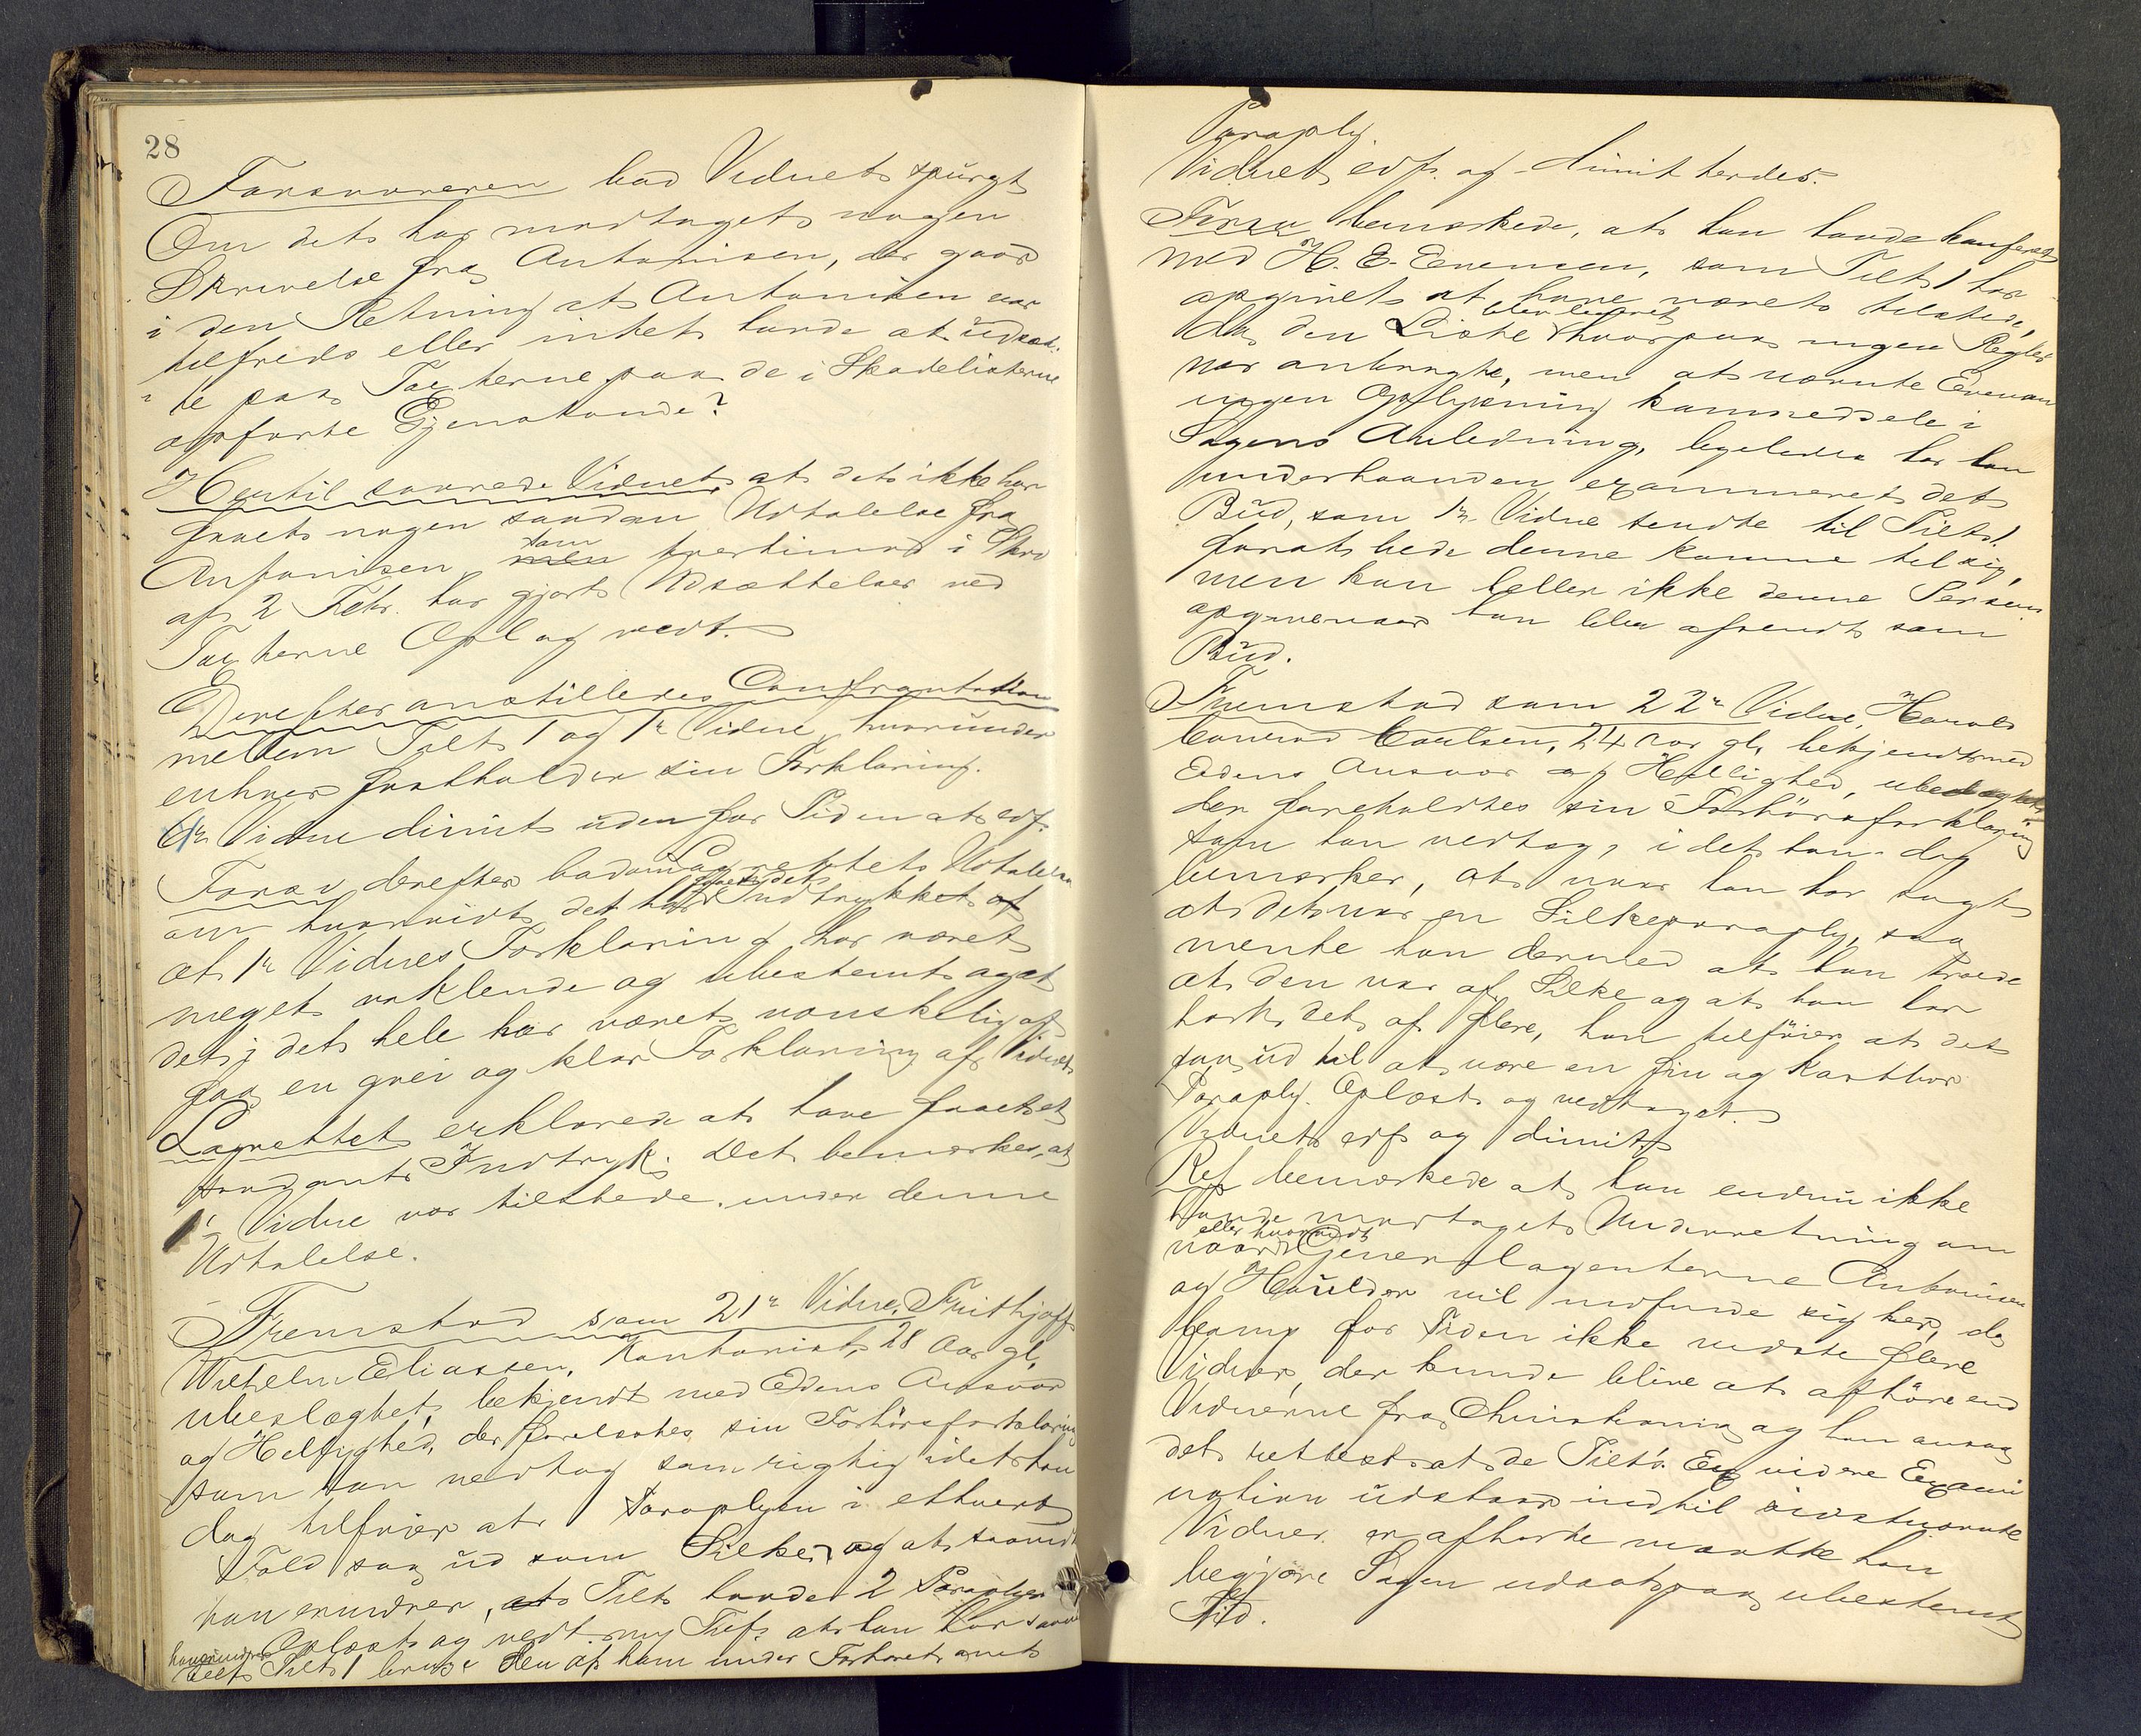 28
Forsvareren bad Vidnet spurgt
Om det har modtaget nogen
Skrivelse fra Antonisen, der gaar
i den Retning at Antonisen var
tilfreds eller intet havde at udsæt-
te paa Taxterne paa de i Skadelisterne
opførte Gjenstande?
Hertil svarede Vidnet at det ikke har
faaet nogen saadan Udtalelse fra
Antonisen, som tvertimod i Skr
af 2 Febr. har gjort Udsættelser ved
Taxterne Opl og vedt.
Derefter anstilledes Confrontation
mellem Tilt 1 og 1ste Vidne, hvorunder
enhver fastholder sin Forklaring.
1ste Vidne dimit uden for Tiden at edf.
Forsv derefter bad om Lagrettets Udtalelse
om hvorvidt det har faaet det Indtrykket
at 1ste Vidnes Forklaring har været
meget vaklende og ubestemt og at
det i det hele har været vanskelig at
faa en grei og klar Forklaring af Vidnet
Lagrettet erklærede at have faaet et
saadant Indtryk. Det bemærkes, at
1ste Vidne var tilstede under denne
Udtalelse.
Fremstod som 21de Vidne, Frithjoff
Wilhelm Eliassen, Kontorist, 28 Aar gl,
ubeslægtet, bekjendt med Edens Ansvar
og Hellighed, der forelæstes sin Forhørsforklaring
som han vedtog som rigtig idet han
dog tilføier at Paraplyen i ethvert
Fald saa ud som Silke, og at saavidt
han erindrer, at Tilt havde 2 Paraplyer
Oplæst og vedt. Tilf. at han har
Tilt 1 bruge den af ham under Forhøret
Paraply.
Vidnet edf. og dimitterdes.
Forsv bemærkede, at han havde konfereret
med H. E. Evensen, som Tilt 1 har
opgivet at have været tilstede,
da den Liste blev leveret hvorpaa ingen Regler
var anbragte, men at nævnte Evensen
ingen Oplysning kan meddele i
Sagens Anledning, ligeledes har han
underhaanden examineret det
Bud, som 1ste Vidne sendte til Tilt 1
forat bede denne komme til sig,
men kan heller ikke denne Person
opgive naar han blev afsendt som
Bud.
Fremstod som 22de Vidne, Harald
Conrad Carlsen, 24 Aar gl, bekjendt med
Edens Ansvar og Hellighed, ubeslægtet
der foreholdtes sin Forhørsforklaring
som han vedtog, idet han dog
bemærker, at naar han har sagt
at det var en Silkeparaply, saa
mente han dermed at han troede
at den var af Silke og at han har
hørt det af flere, han tilføier at det
saa ud til at være en fin og kostbar
Paraply. Oplæst og vedtaget.
Vidnet edf og dimit
Ref bemærkede at han endnu ikke
havde modtaget Underretning om
naar eller hvorvidt Generalagenterne Antonisen
og Houlder vil indfinde sig her, da
for Tiden ikke vidste flere
Vidner, der kunde blive at afhøre end
Vidnerne fra Christiania og han ansaa
det rettest at de Tilt's videre Exami
nation udstaar indtil sidstnævnte
Vidner er afhørte maatte han
begjære Sagen udsat paa ubestemt
Tid.